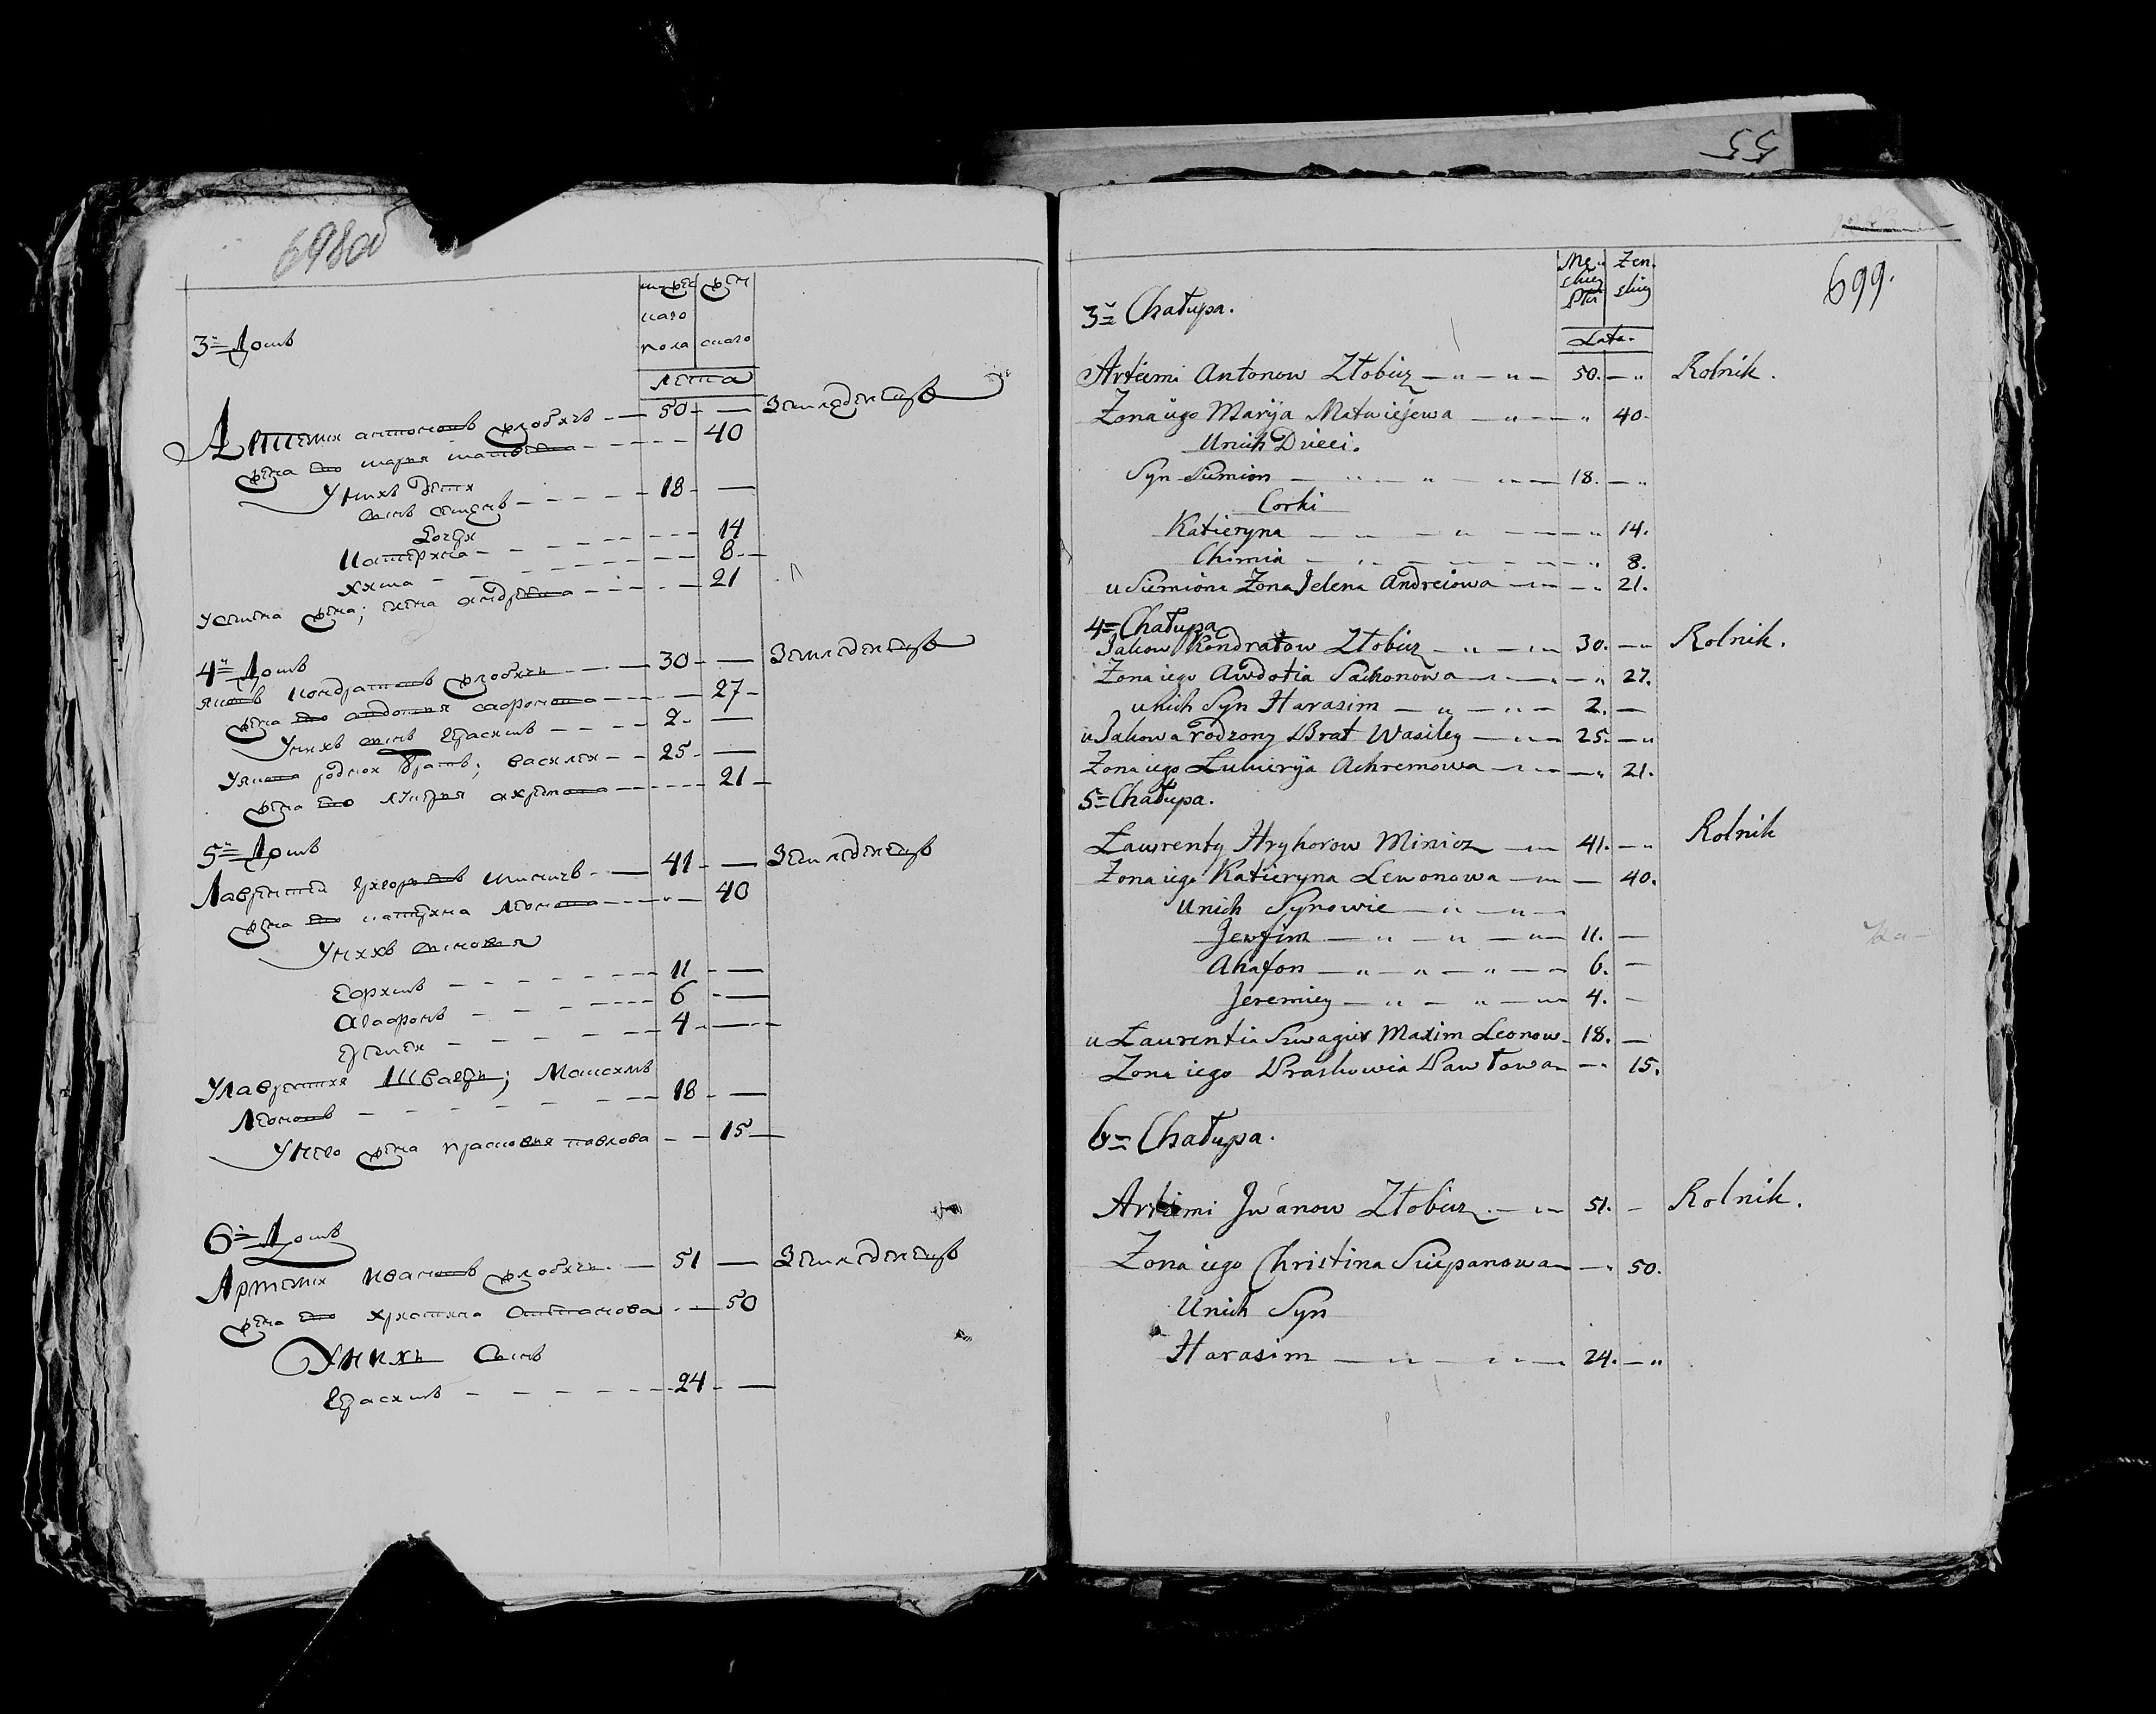 698об
мужес
кого
пола
жен
скаго
лета
3й Домъ
Артемiи антоновъ жлобичъ 50 Земледелецъ
жена его мария матвеева 40
У нихъ дети
сынъ семенъ 18
Дочери
катерина 14
хима 8
У семена жена; елена андреева 21
4й Домъ
яковъ кондратовъ жлобичъ 30 Земледелецъ
жена его авдотия сафонова 27
У нихъ сынъ герасимъ 2
У якова родной братъ; василей 25
жена его лукеря ахремова 21
5й Домъ
Лаврентей григоревъ миничъ 41 Земледелецъ
жена его катерина леонова 40
У нихъ сыновя
ефимъ 11
агафонъ 6
еремей 4
У лаврентия Швагеръ; Максимъ
Леоновъ 18
У него жена прасковя павлова 15
6й Домъ
Артеми Ивановъ жлобичъ 51 Земледелецъ
жена его христина степанова 50
У нихъ Сынъ
герасимъ 24
55
699.
Mę
skiey
Płci
Żen
skiey
Lata.
3a Chałupa.
Artiemi Antonow Złobicz 50. Rolnik.
Zona iego Maryja Matwiejewa 40.
U nich Dzieci.
Syn Siemion 18.
Corki
Katieryna 14.
Chimia 8.
u Siemiona Zona Jelena Andreiowa 21.
4a Chałupa
Jakow Kondratow Złobicz 30. Rolnik.
Zona iego Awdotia Sachonowa 27.
u nich Syn Harasim 2.
u Jakowa rodzony Brat Wasiley 25.
Zona iego Łukierya Achremowa 21.
5a Chałupa.
Ławrenty Hryhorow Minicz 41. Rolnik
Zona iego Katieryna Lewonowa 40.
U nich Synowie
Jewfim 11.
Ahafon 6.
Jeremiey 4.
u Ławrentia Szwagier Maxim Leonow 18.
Zona iego Praskowia Pawłowa 15.
6a Chałupa.
Artiemi Jwanow Złobicz 51. Rolnik.
Zona iego Christina Sciepanowa 50.
U nich Syn
Harasim 24.